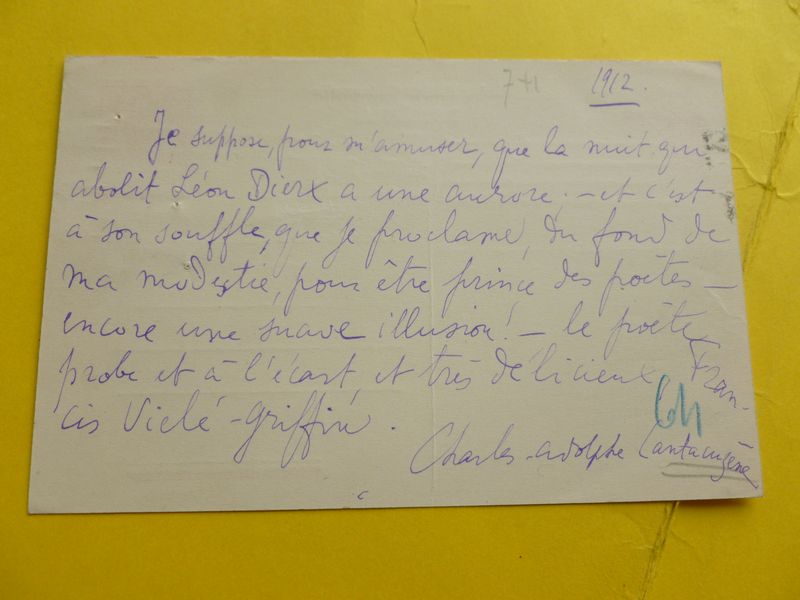 1912.
Je suppose, pour m'amuser, que la nuit qui
abolit Léon Dierx a une aurore; – et c'est
à son souffle, que je proclame, du fond de
ma modestie, pour être prince des poëtes –
encore une suave illusion! – le poëte
probe et à l'écart, et très délicieux, Fran-
cis Vielé-Griffin.
Charles-Adolphe Cantacuzène